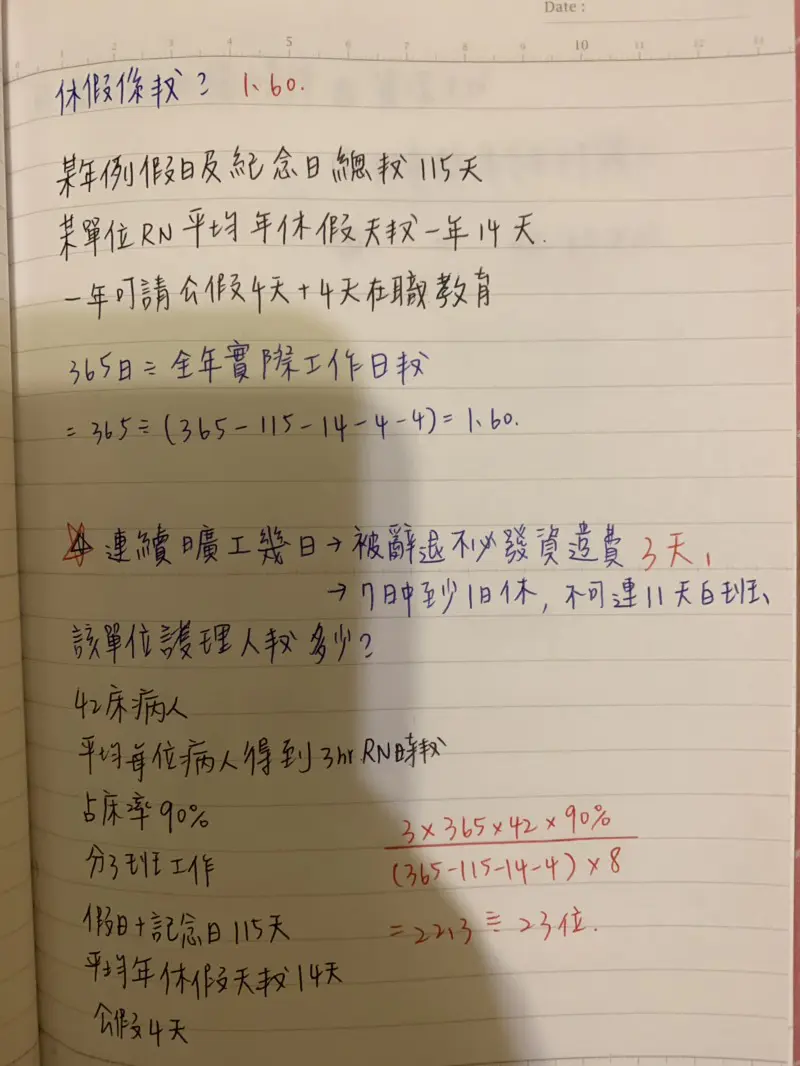 Date :
1 2 3 4 5 6 7 8 9 10 11 12 13
休假係數? 1.60.
某年例假日及紀念日總數115天
某單位RN平均年休假天數一年14天.
一年可請公假4天+4天在職教育
365日÷全年實際工作日數
=365÷(365-115-14-4-4)=1.60.
☆連續曠工幾日→被辭退不必發資遣費 3天,
→7日中至少1日休,不可連11天白班、
該單位護理人數多少?
42床病人
平均每位病人得到3hr RN時數
占床率90%
3×365×42×90%
分3班工作
(365-115-14-4)×8
假日+記念日115天
=22.3≡23位.
平均年休假天數14天
公假4天